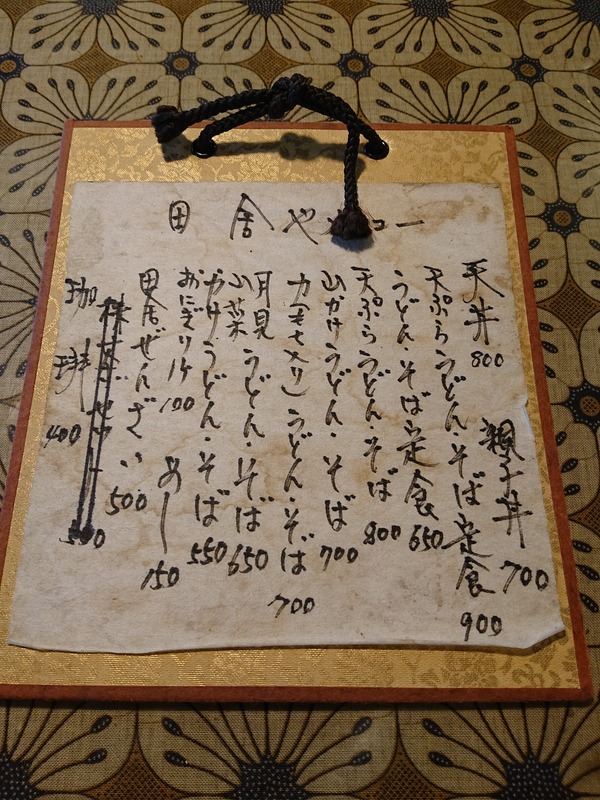 田舎やメニュー
天丼 800 親子丼 700
天ぷらうどん・そば定食 900
うどん・そば定食 650
天ぷらうどん・そば 800
山かけうどん・そば 700
力(もち入り)うどん・そば 700
月見
山菜 うどん・そば 650
かけうどん・そば 550
おにぎり1ケ 100 めし 150
田舎ぜんざい 500
珈琲 400